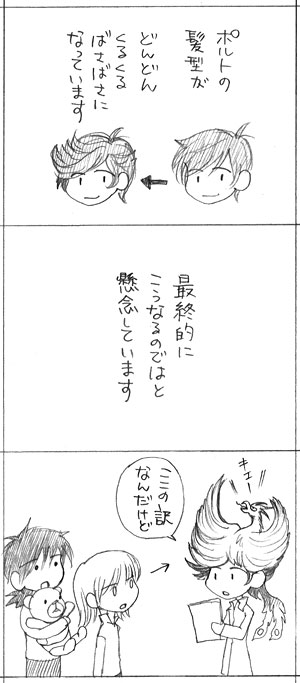 ポルトの
髪型が
どんどん
くるくる
ばさばさに
なっています
最終的に
こうなるのではと
懸念しています
キエー!!
ここの訳
なんだけど